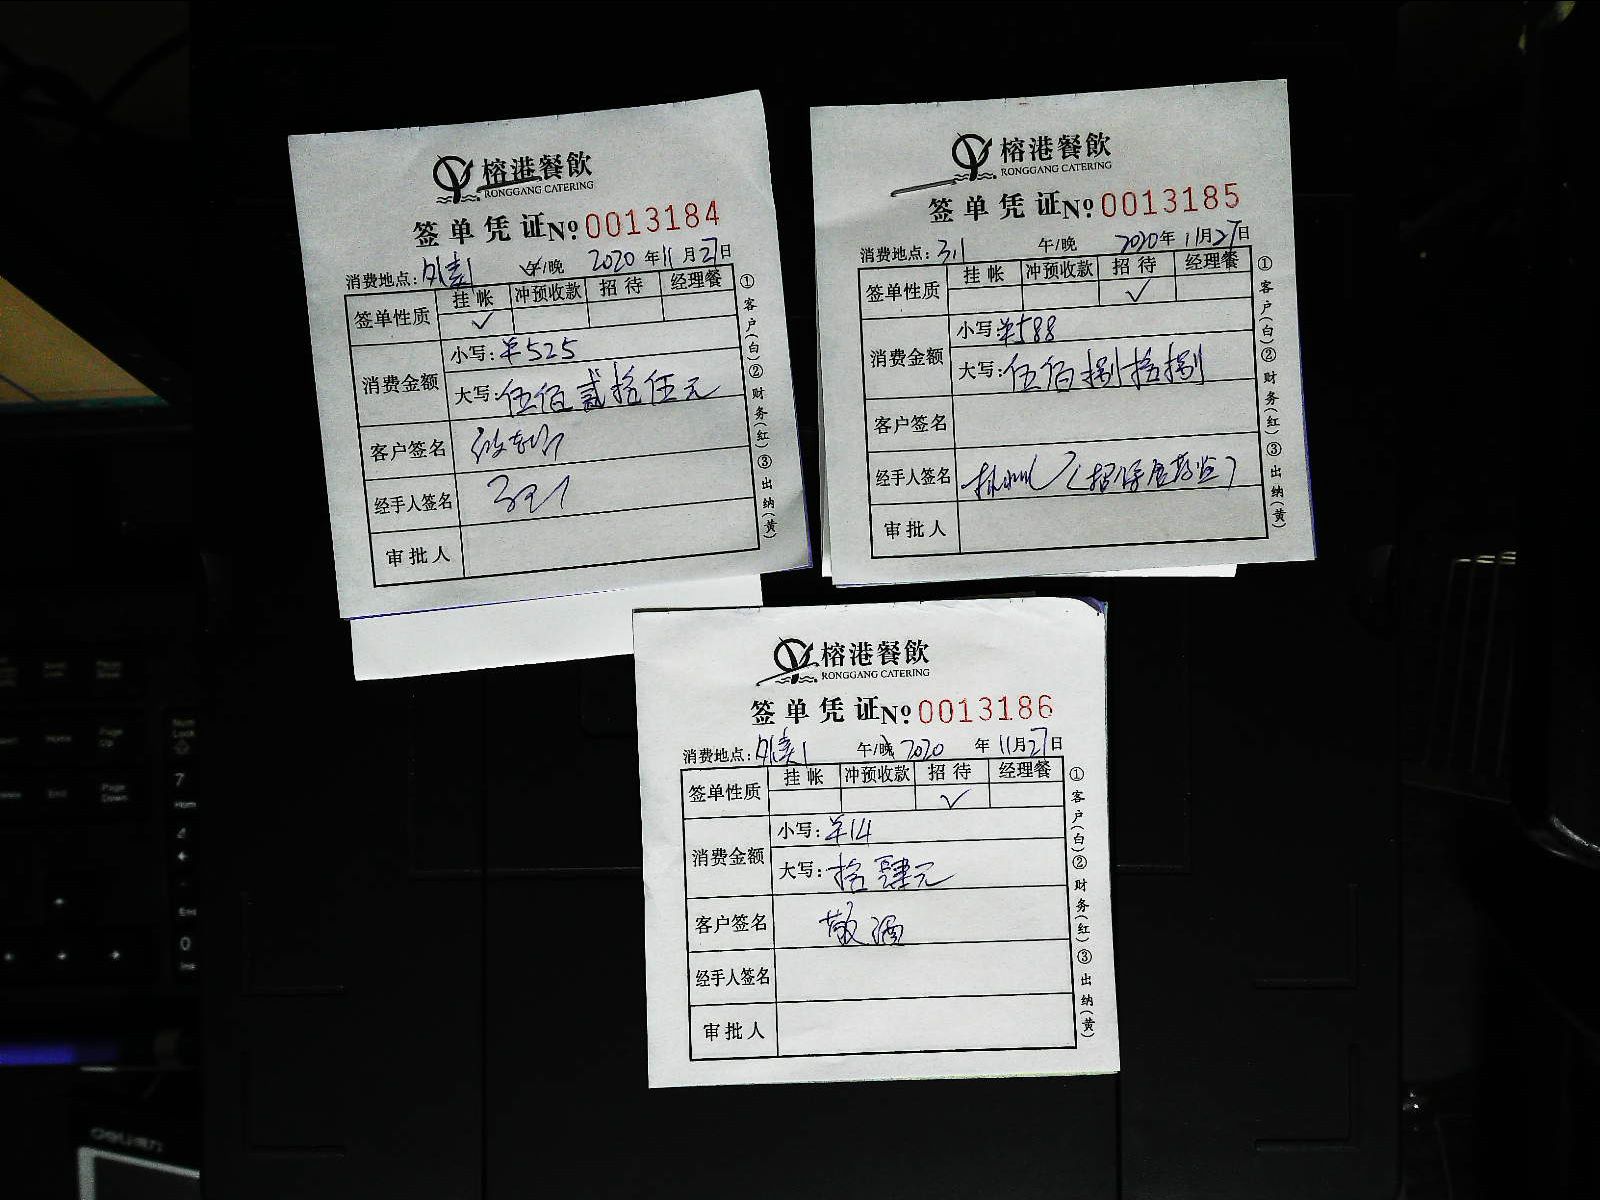 榕港餐飲
RONGGANG CATERING
签单凭证 №0013184
消费地点:外卖1 午/晚 2020年11月27日
签单性质 挂帐 冲预收款 招待 经理餐
✓
消费金额 小写:¥525
大写:伍佰贰拾伍元
客户签名
经手人签名
审批人
①客户(白)②财务(红)③出纳(黄)
榕港餐飲
RONGGANG CATERING
签单凭证 №0013185
消费地点:311 午/晚 2020年11月27日
签单性质 挂帐 冲预收款 招待 经理餐
✓
消费金额 小写:¥588
大写:伍佰捌拾捌
客户签名
经手人签名
审批人
①客户(白)②财务(红)③出纳(黄)
榕港餐飲
RONGGANG CATERING
签单凭证 №0013186
消费地点:外卖1 午/晚 2020年11月27日
签单性质 挂帐 冲预收款 招待 经理餐
✓
消费金额 小写:¥14
大写:拾肆元
客户签名 散酒
经手人签名
审批人
①客户(白)②财务(红)③出纳(黄)